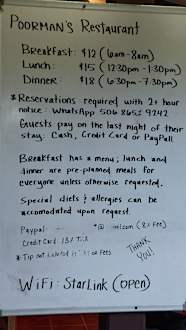 POORMAN'S RESTAURANT
BREAKFAST: $12 (6am-8am)
LUNCH: $15 (12:30pm-1:30pm)
DINNER: $18 (6:30pm-7:30pm)
*Reservations required with 2+ hour
notice: WhatsApp 506 8652 9242
Guests pay on the last night of their
stay: Cash, Credit Card or PayPall
Breakfast has a menu; lunch and
dinner are pre-planned meals for
everyone unless otherwise requested.
Special diets & allergies can be
accomodated upon request.
Paypal: @ .com (8% Fee)
Credit Card 13%
* Tip not Fees
THANK
YOU!
WiFi: STARLINK (OPEN)